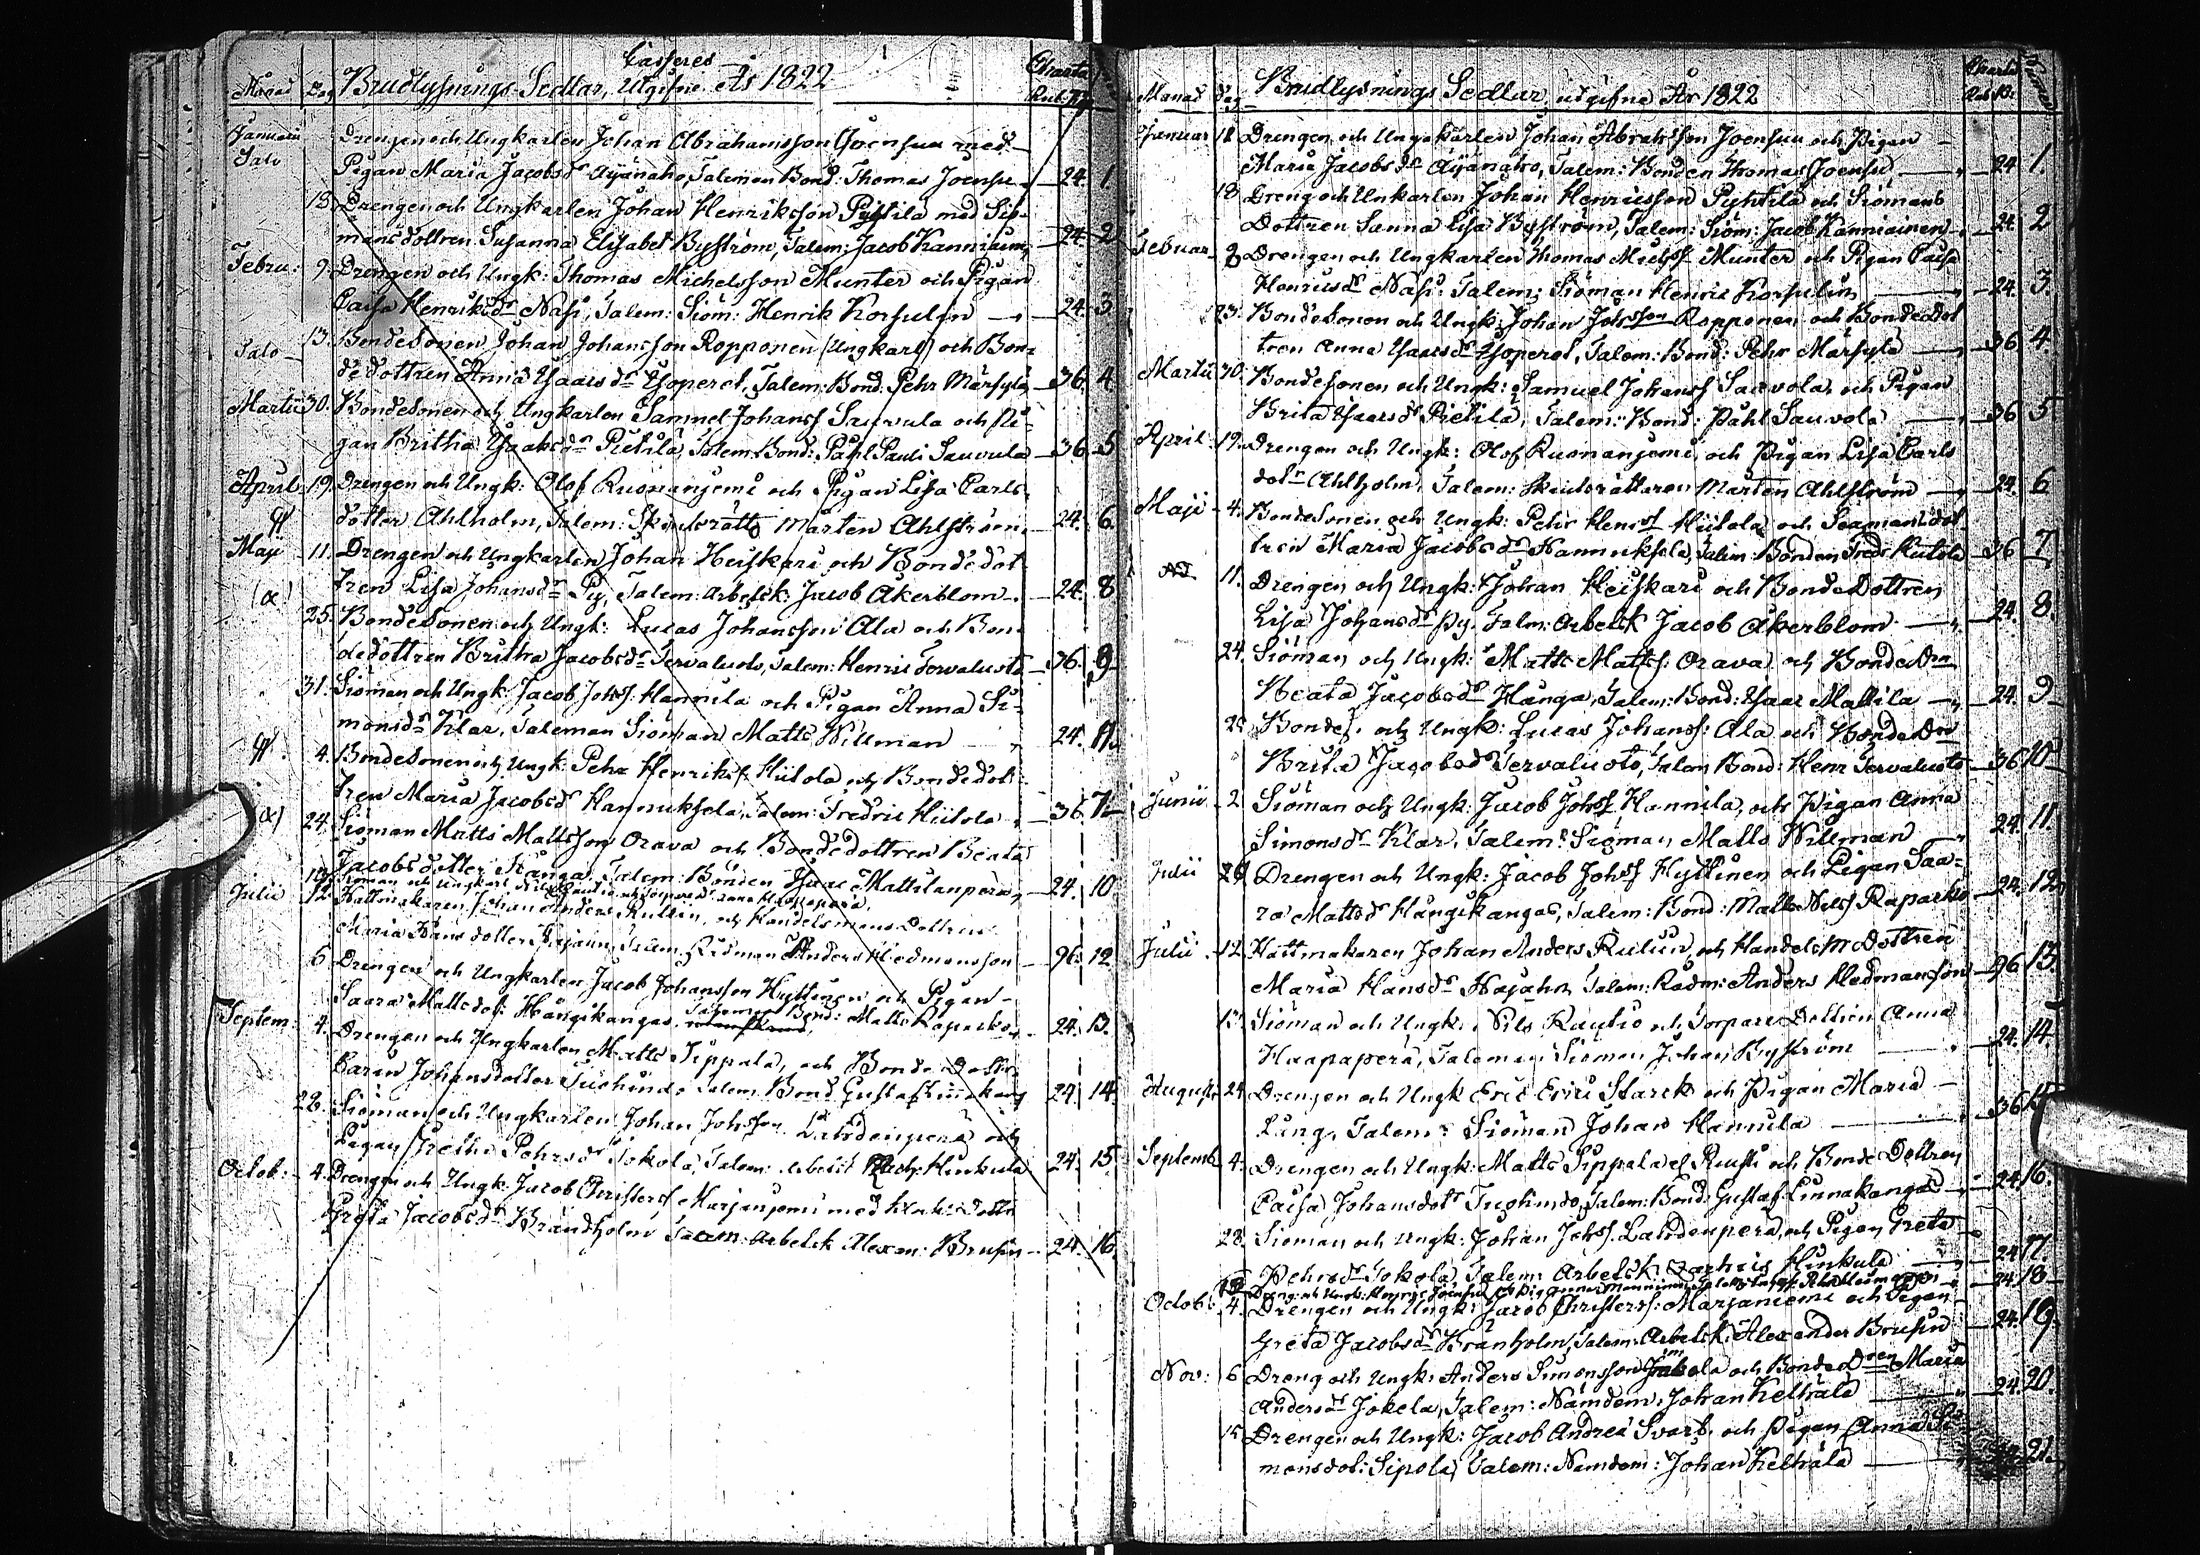 Casseres
Månad Dag Brudlysnings-Sedlar, Utgifne År 1822 Charta
Januarii Drengen och Ungkarlen Johan Abrahamsson Joensuu med
Salo Pigan Maria Jacobsdr Äyänaho, Taleman Bond: Thomas Joensu 24. 1.
18. Drengen och Ungkarlen Johan Henriksson Pyhtilä med Siö-
mans dottren Susanna Elisabet Byström, Talem: Jacob Kanniainen 24. 2
Febru: 9. Drengen och Ungk: Thomas Michelsson Munter och Pigan
Caisa Henriksdr Nasi, Talem: Siöm: Henrik Korsulin 24. 3.
13. Bondesonen Johan Johansson Ropponen (Ungkarl) och Bon-
Salo dedottren Anna Isaacsdr Yoperet, Talem: Bond. Pehr Märsylä 36. 4.
Martii 30. Bondesonen och Ungkarlen Samuel Johanss Sauvula och Pi-
gan Britha Isaaksdr Pietilä, Talem. Bond: Påhl Pauli Sauvula 36. 5
April 19. Drengen och Ungk: Olof Rusnanjemi och Pigan Lisa Carls-
dotter Ahlholm, Talem: Skeutsrätt: Mårten Ahlström 24. 6.
Maji 11. Drengen och Ungkarlen Johan Heiskari och Bondedot-
(a) tren Lisa Johansdr Py, Talem: Arbetsk: Jacob Åkerblom. 24. 8
25. Bondesonen och Ungk: Lucas Johansson Ala och Bon-
dedottren Britha Jacobsdr Tervaluoto, Talem: Henric Tervaluoto 36. 9
31. Siöman och Ungk: Jacob Johss: Hannila och Pigan Anna Si-
monsdr Klar, Taleman Siöman Matts Willman 24. 11.
4. Bondesonen och Ungk: Pehr Henrikss: Hiitola och Bondedot-
tren Maria Jacobsdr Hannuksela, Talem: Fredric Hiitola 36. 7
(a) 24. Siöman Matts Mattsson Orava och Bondedottren Beata
Jacobsdotter Kanga, Talem: Bonden Isaac Mattilanperä 24. 10
13. Siöman och Ungkarl Nils Rautio och Torpare Anna Haapaperä
Julii 12. Hattmakaren Johan Anders Rulin, och Handelsmans Dottren
Maria Hans dotter Hajahn, Talem. Rådman Anders Hedmansson 96. 12
6 Drengen och Ungkarlen Jacob Johansson Hyttinen och Pigan
Saara Mattsdot: Hängikangas, Taleman Bond: Matts Rapacko 24. 13.
Septem: 4. Drengen och Ungkarlen Matts Sippala, och Bonde Dottr
Carin Johansdotter Tuohindo Talem. Bond Gustaf Linnakang 24. 14.
28. Siöman och Ungkarlen Johan Johsson Lahdenperä och
Pigan Gretha Pehrsdr Jokola, Talem: Arbetsk Zach: Hinkula 24. 15
Octob: 4. Drengen och Ungk: Jacob Christerss Marjanjemi med
Greta Jacobsdr Brandholm Talem: Arbetsk Alexan: Brusin 24. 16.
Månad Dag Brudlysnings Sedlar utgifne År 1822 Charta
Januar 11 Drengen och Ungkarlen Johan Abrahsson Joensuu och Pigan
Maria Jacobsdr Äyänäho, Talem: Bonden Thomas Joensu 24 1.
18 Dreng och Unkarlen Johan Henricsson Pyhtilä och Siömans
Dottren Sanna Lisa Byström, Talem: Siöm: Jacob Kanniainen 24. 2
Februar 9 Drengen och Ungkarlen Thomas Michss Munter och Pigan Caisa
Henricsdr Nasi, Talem: Siöman Henric Korsulin 24. 3.
23. Bondesonen och Ungk: Johan Johsson Ropponen och Bondedot-
tren Anna Isaacsdr Yoperet, Talem: Bond: Pehr Märsylä 36 4.
Martii 30. Bondesonen och Ungk: Samuel Johanss Sauvola och Pigan
Brita Isaacsdr Pietilä, Talem: Bond: Påhl Sauvola 36 5
April 19. Drengen och Ungk: Olof Rusnanjemi, och Pigan Lisa Carls
dotr Ahlholm, Talem: Skeutsrättaren Mårten Ahlström 24. 6
Maji 4. Bondesonen och Ungk: Pehr Henrss Hiitola och Siömansdot-
tren Maria Jacobsdr Hannuksela, Talem: Bonden Fredr Hiitola 36 7
11. Drengen och Ungk: Johan Heiskari och Bonde Dottren
Lisa Johansdr Py. Talm: Arbetsk Jacob Åkerblom 24. 8.
24. Siöman och Ungk: Matts Mattss: Orava och Bonde Drn
Beata Jacobsdr Kanga, Talem: Bond: Isaac Mattila 24. 9
25 Bondes: och Ungk: Lucas Johanss: Ala och Bonde Dr
Brita Jacobsdr Tervaluoto, Talem Bond: Henr Tervaluoto 36 10
Junii 2 Siöman och Ungk: Jacob Johss Hannila, och Pigan Anna
Simonsdr Klar, Talem: Siöman Matts Willman 24. 11.
Julii 26 Drengen och Ungk: Jacob Johss Hyttinen och Pigan Saa-
ra Mattsdr Hängikangas, Talem: Bond: Matts Nilss Rapacko 24. 12
Julii 12. Hattmakaren Johan Anders Rulin, och Handelsm Dottren
Maria Hansdr Hajahn Talem: Rådm: Anders Hedmansson 96 13.
13. Siöman och Ungk. Nils Rautio och Torpare Dottren Anna
Haapaperä, Taleman Siöman Johan Byström 24. 14.
Augusti 24 Drengen och Ungk Eric Erici Starck och Pigan Maria
Lung, Talem: Siöman Johan Hannula 36 15
Septemb 4. Drengen och Ungk: Matts Sippala och Bonde Dottren
Caisa Johansdotr Tuohindo, Talem: Bond: Gustaf Linnakangas 24. 16.
28. Siöman och Ungk: Johan Johss. Lahdenperä, och Pigan Greta
Pehrsdr Jokola, Talem: Arbetsk: Zachris Hinkula 24 17.
24. 18
Octob: 4. Drengen och Ungk: Jacob Christerss: Marjaniemi och Pigan
Greta Jacobsdr Branholm, Talem: Arbetsk: Alexander Brusin 24. 19.
Nov: 6 Dreng och Ungk: Anders Simonsson Jokela och Bonde Dren Maria
Andersdr Jokela, Talem: Nämdem: Johan Kelträlä 24. 20.
15 Drengen och Ungk: Jacob Andreæ Svarf, och Pigan Anna Si-
monsdot: Sipola, Talem: Nämdem: Johan Kelträlä 21.